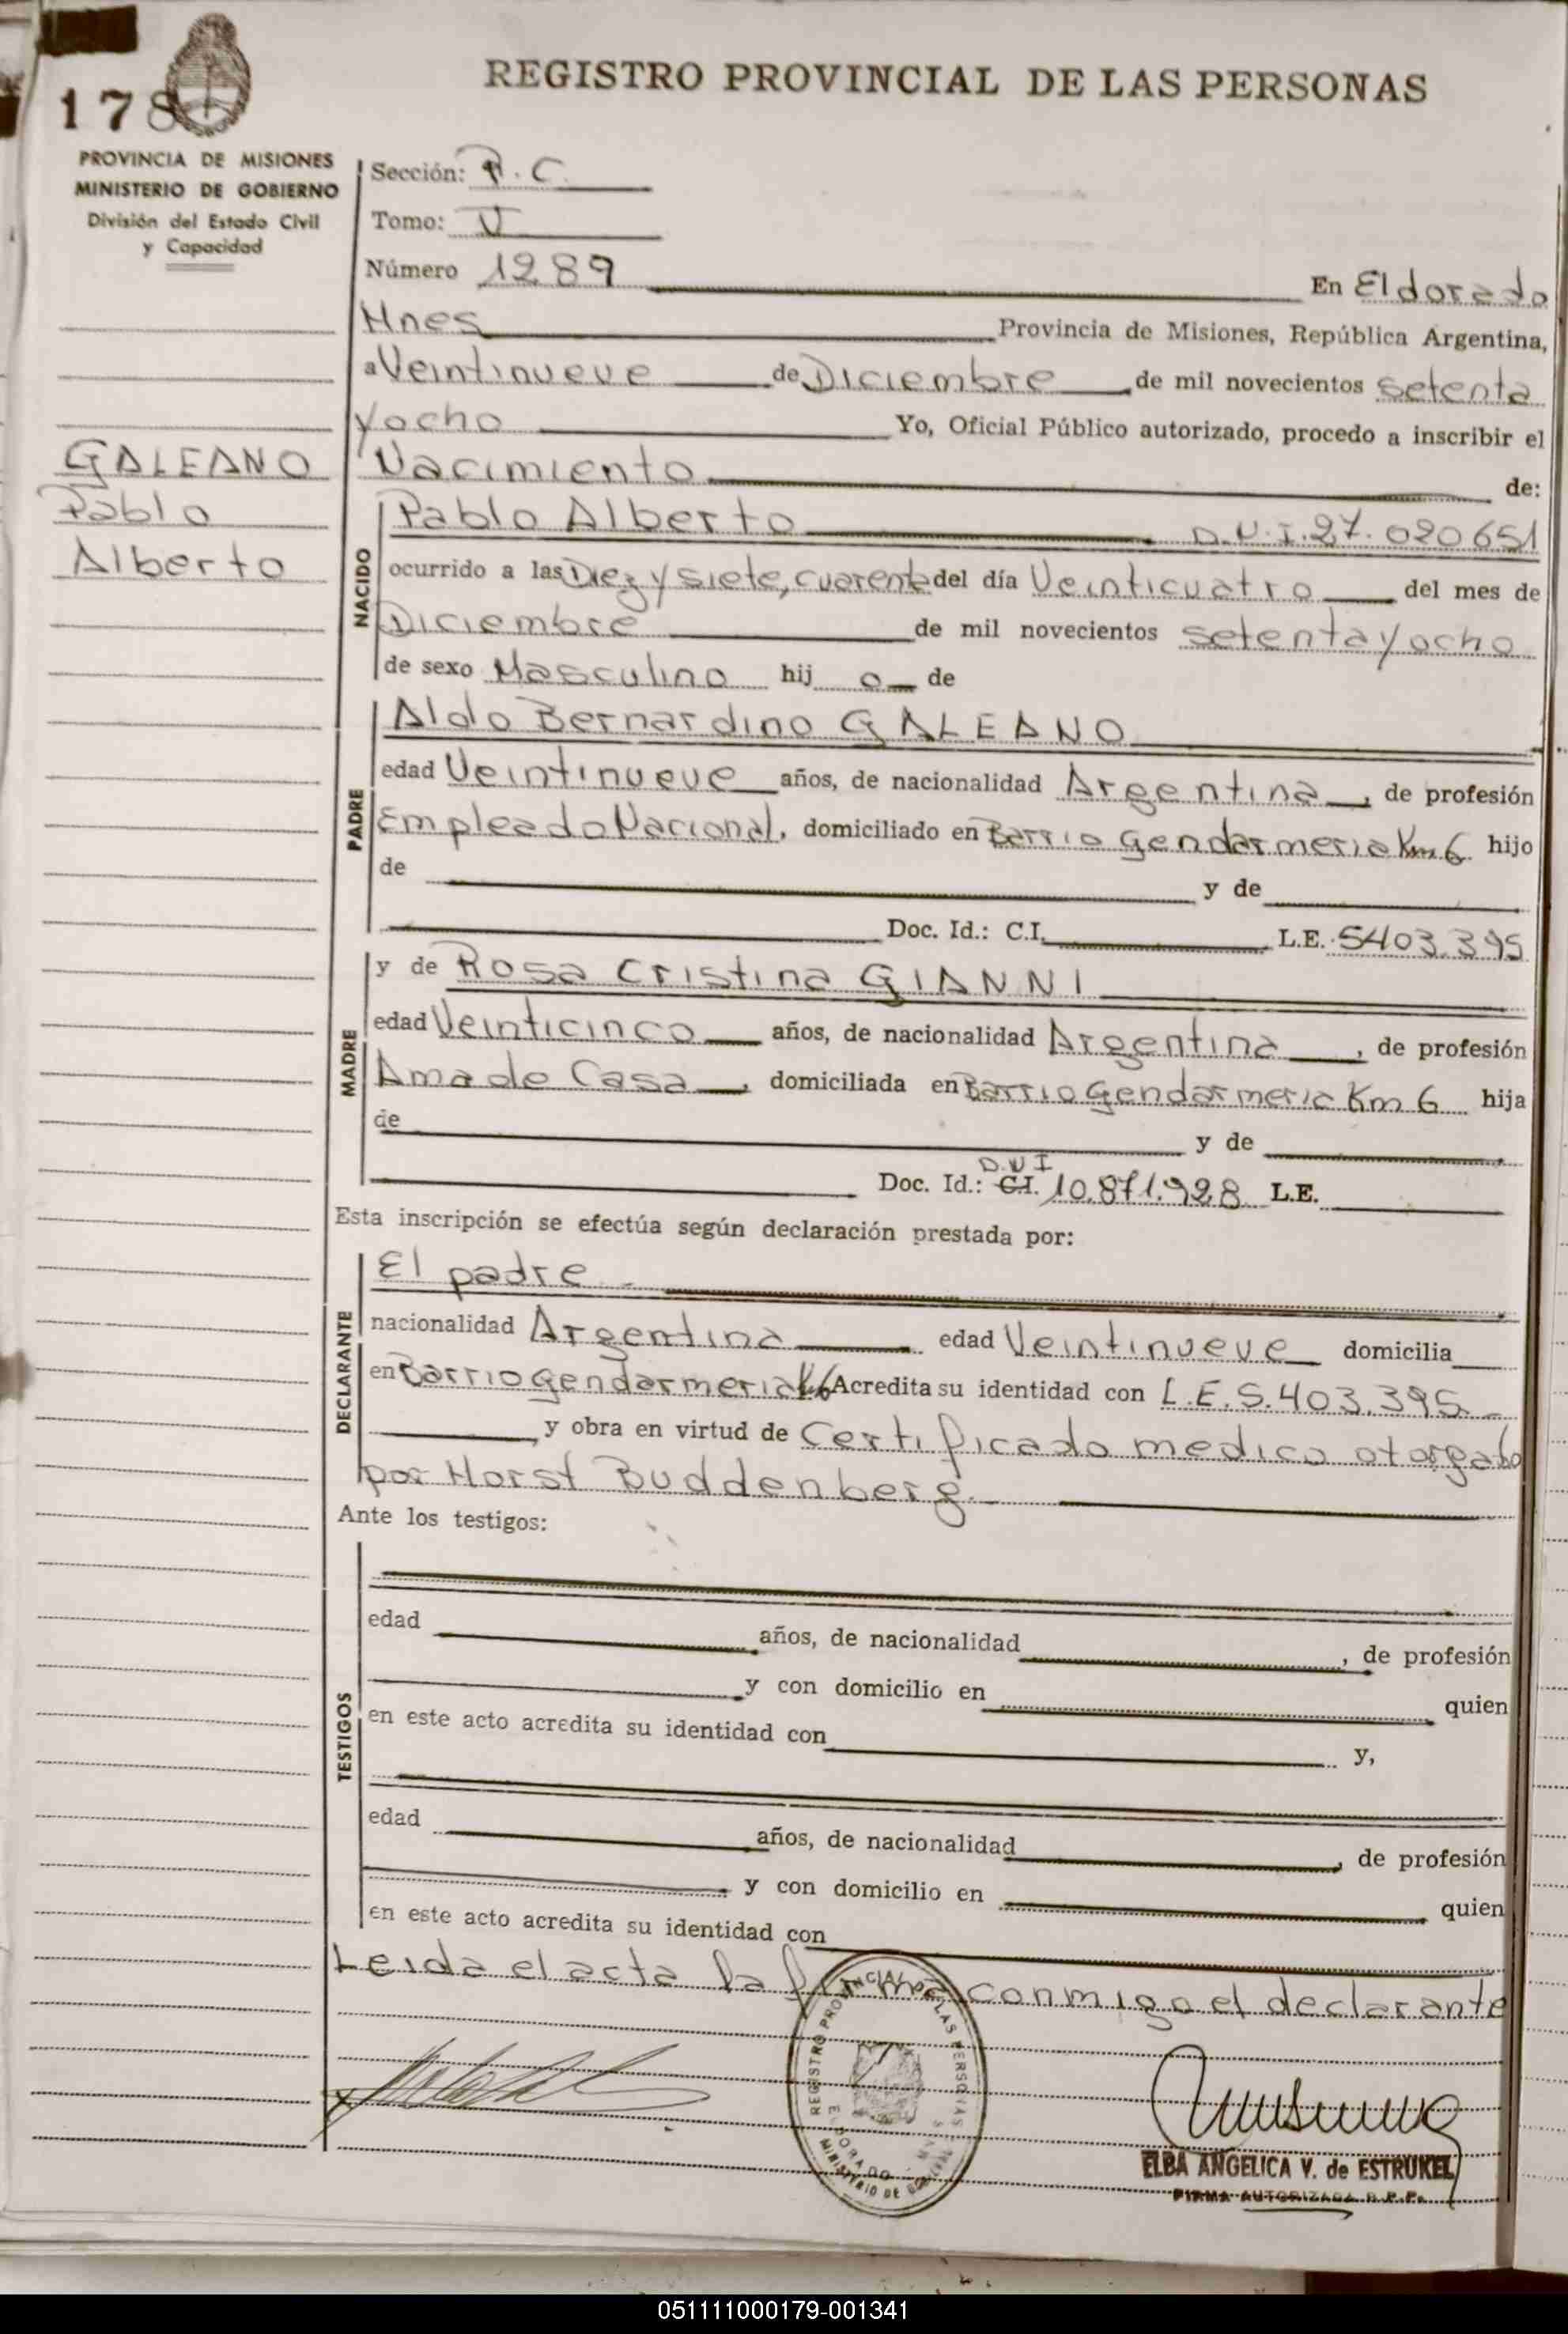 REGISTRO PROVINCIAL DE LAS PERSONAS
178
PROVINCIA DE MISIONES
MINISTERIO DE GOBIERNO
División del Estado Civil
y Capacidad
GALEANO
Pablo
Alberto
Sección: R.C.
Tomo: V
Número 1289 En Eldorado
Mnes Provincia de Misiones, República Argentina,
a Veintinueve de Diciembre de mil novecientos setenta
y ocho Yo, Oficial Público autorizado, procedo a inscribir el
Nacimiento de:
NACIDO
Pablo Alberto D.N.I. 27.020651
ocurrido a las Diez y siete, cuarenta del día Veinticuatro del mes de
Diciembre de mil novecientos setenta y ocho
de sexo Masculino hij o de
PADRE
Aldo Bernardino GALEANO
edad Veintinueve años, de nacionalidad Argentina, de profesión
Empleado Nacional, domiciliado en Barrio Gendarmeria Km 6 hijo
de y de
Doc. Id.: C.I. L.E. 5403.395
MADRE
y de Rosa Cristina GIANNI
edad Veinticinco años, de nacionalidad Argentina, de profesión
Ama de Casa, domiciliada en Barrio Gendarmeria Km 6 hija
de y de
D.N.I
Doc. Id.: C.I. 10.871.928 L.E.
Esta inscripción se efectúa según declaración prestada por:
DECLARANTE
El padre
nacionalidad Argentina edad Veintinueve domicilia
en Barrio Gendarmeria K6 Acredita su identidad con L.E. 5.403.395
y obra en virtud de Certificado medico otorgado
por Horst Buddenberg
Ante los testigos:
TESTIGOS
edad años, de nacionalidad, de profesión
y con domicilio en quien
en este acto acredita su identidad con y,
edad años, de nacionalidad, de profesión
y con domicilio en quien
en este acto acredita su identidad con
Leida el acta la firma conmigo el declarante
REGISTRO PROVINCIAL DE LAS PERSONAS
ELDORADO
MINISTERIO DE GOBIERNO
ELBA ANGELICA V. de ESTRUKEL
FIRMA AUTORIZADA R.P.P.
051111000179-001341